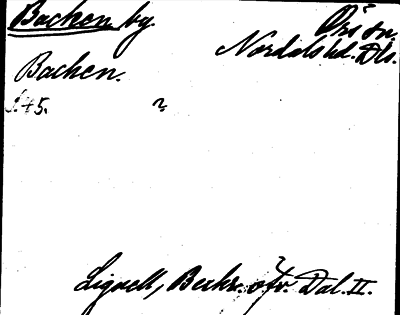 Backen by.
Örs sn.
Nordals hd. Dls.
Backen.
s. 45. ?
Lignell, Beskr. öfv. Dal. II.